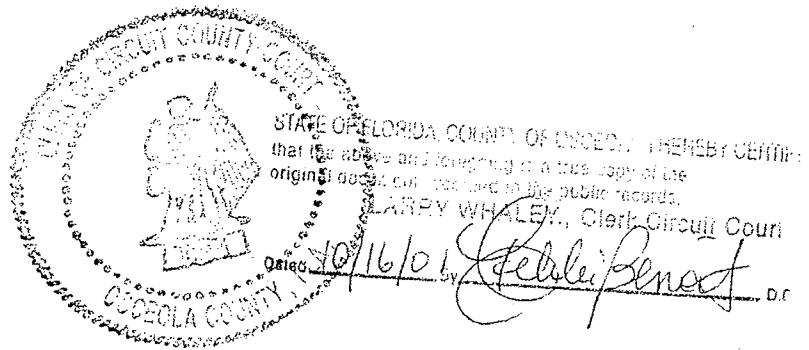 CLERK OF CIRCUIT COUNTY COURT
OSCEOLA COUNTY
STATE OF FLORIDA, COUNTY OF OSCEOLA I HEREBY CERTIFY
that the above and foregoing is a true copy of the
original document recorded in the public records.
LARRY WHALEY, Clerk Circuit Court
Dated 10/16/01 by Debbi Benoit D.C